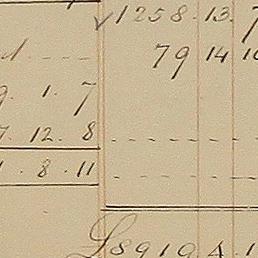 ✓1258.13.7
79 14
9. 1. 7
7. 12. 8
. 8. 11
£8919 4. 1